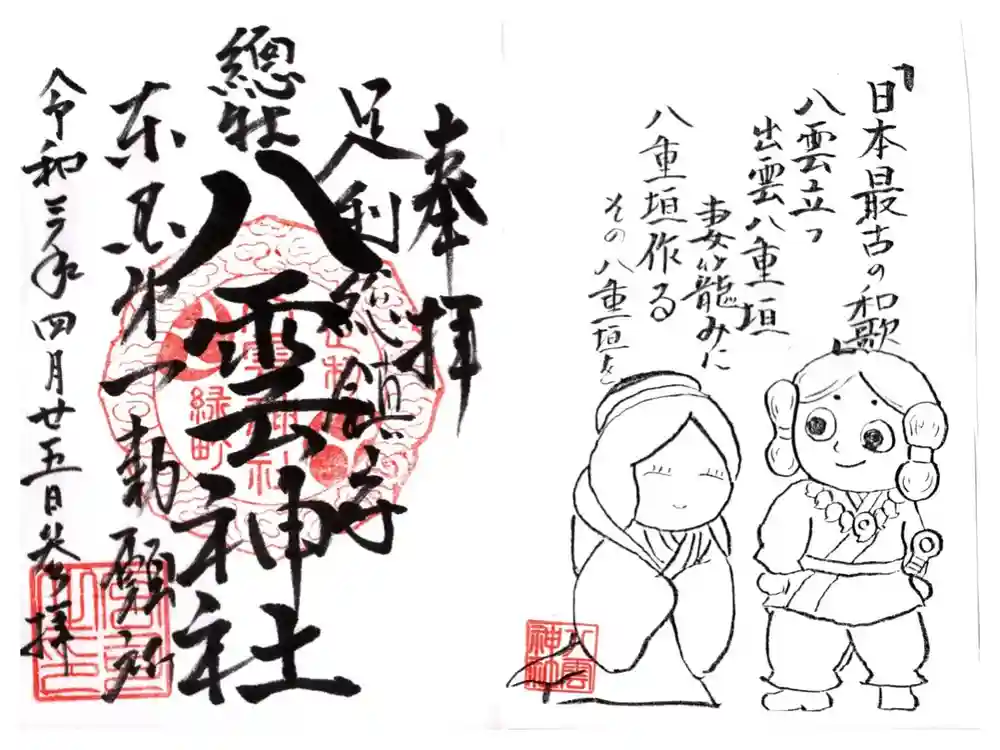 日本最古の和歌
八雲立つ
出雲八重垣
妻籠みに
八重垣作る
その八重垣を
八雲神社
奉拝
足利総鎮守
總社
八雲神社
東国第一勅願所
令和三年四月廿五日参拝
緑町